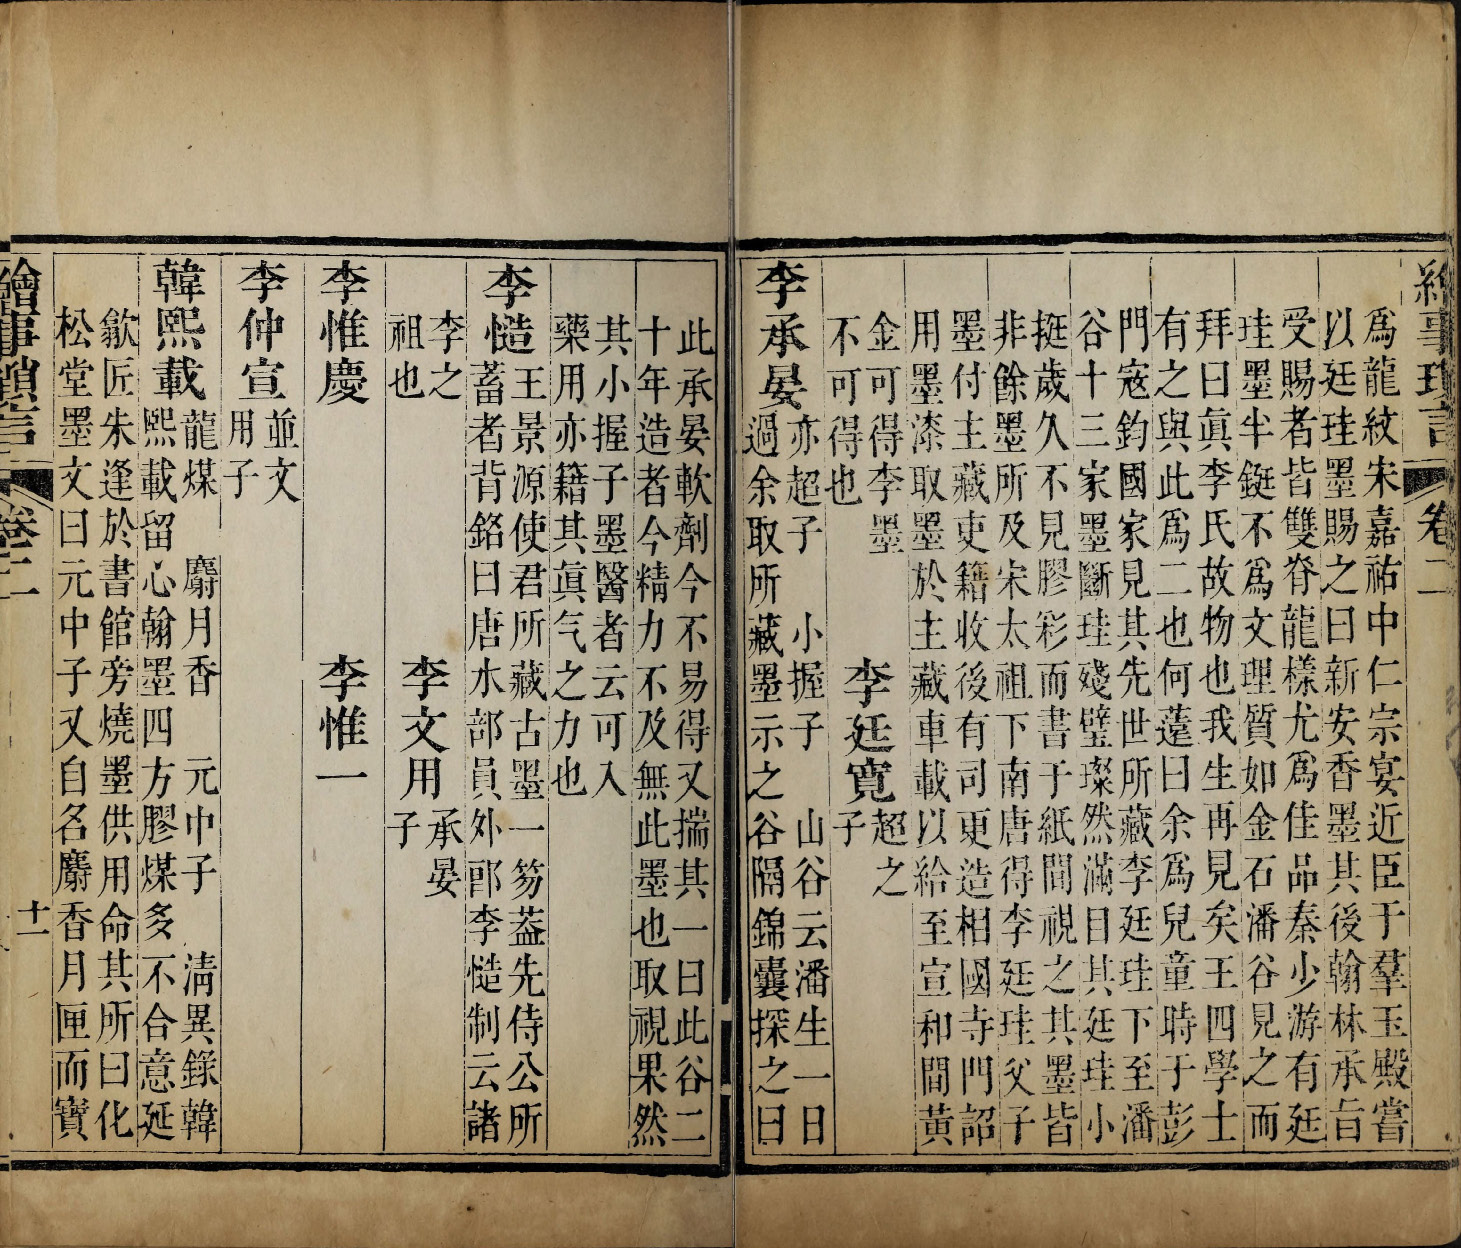 繪事瑣言 卷二
爲龍紋宋嘉祐中仁宗宴近臣于羣玉殿嘗
以廷珪墨賜之曰新安香墨其後翰林承旨
受賜者皆雙脊龍樣尤爲佳品秦少游有廷
珪墨半鋌不爲文理質如金石潘谷見之而
拜曰眞李氏故物也我生再見矣王四學士
有之與此爲二也何薳曰余爲兒童時于彭
門寇鈞國家見其先世所藏李廷珪下至潘
谷十三家墨斷珪殘璧璨然滿目其廷珪小
挺歲久不見膠彩而書于紙間視之其墨皆
非餘墨所及宋太祖下南唐得李廷珪父子
墨付主藏吏籍收後有司更造相國寺門詔
用墨漆取墨於主藏車載以給至宣和間黃
金可得李墨
不可得也
李廷寬 超之
子
李承晏 亦超子 小握子 山谷云潘生一日
過余取所藏墨示之谷隔錦囊探之曰
此承晏軟劑今不易得又揣其一曰此谷二
十年造者今精力不及無此墨也取視果然
其小握子墨醫者云可入
藥用亦籍其眞气之力也
李慥 王景源使君所藏古墨一笏蓋先侍公所
蓄者背銘曰唐水部員外郎李慥制云諸
李之
祖也
李文用 承晏
子
李惟慶
李惟一
李仲宣 並文
用子
韓熙載 龍煤 麝月香 元中子 清異錄韓
熙載留心翰墨四方膠煤多不合意延
歙匠朱逢於書館旁燒墨供用命其所曰化
松堂墨文曰元中子又自名麝香月匣而寶
繪事瑣言 卷二 十一